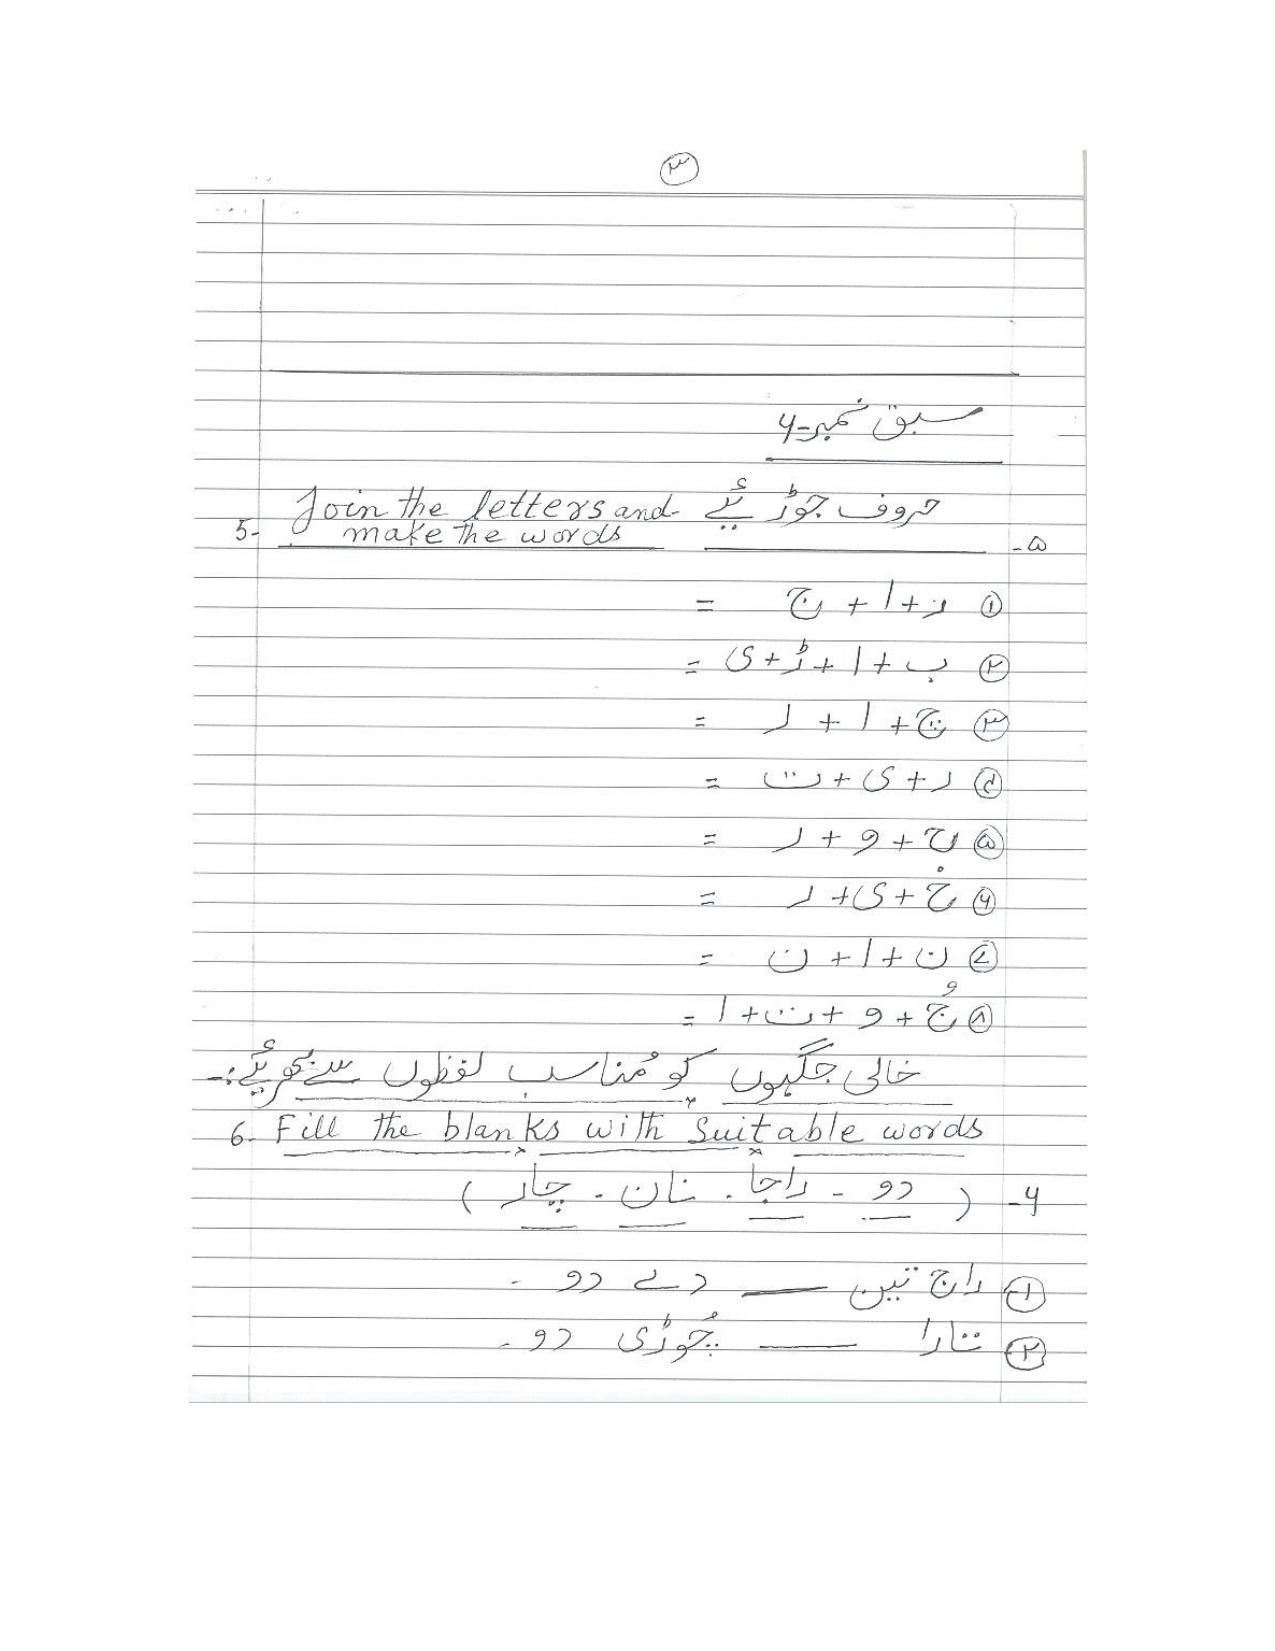 ۳
سبق نمبر-۶
5- Join the letters and حروف جوڑیئے ۵-
make the words
① ر+ا+ج =
② ب+ا+ڑ+ی =
③ چ+ا+ر =
④ ر+ی+ت =
⑤ چ+و+ر =
⑥ خ+ی+ر =
⑦ ن+ا+ن =
⑧ جُ+و+ت+ا =
خالی جگہوں کو مُناسب لفظوں سے بھریئے:-
6- Fill the blanks with suitable words
۶- ( دو - راجا - نان - چار )
①- راج تین ــــ دے دو -
②- تارا ــــ چُوڑی دو -